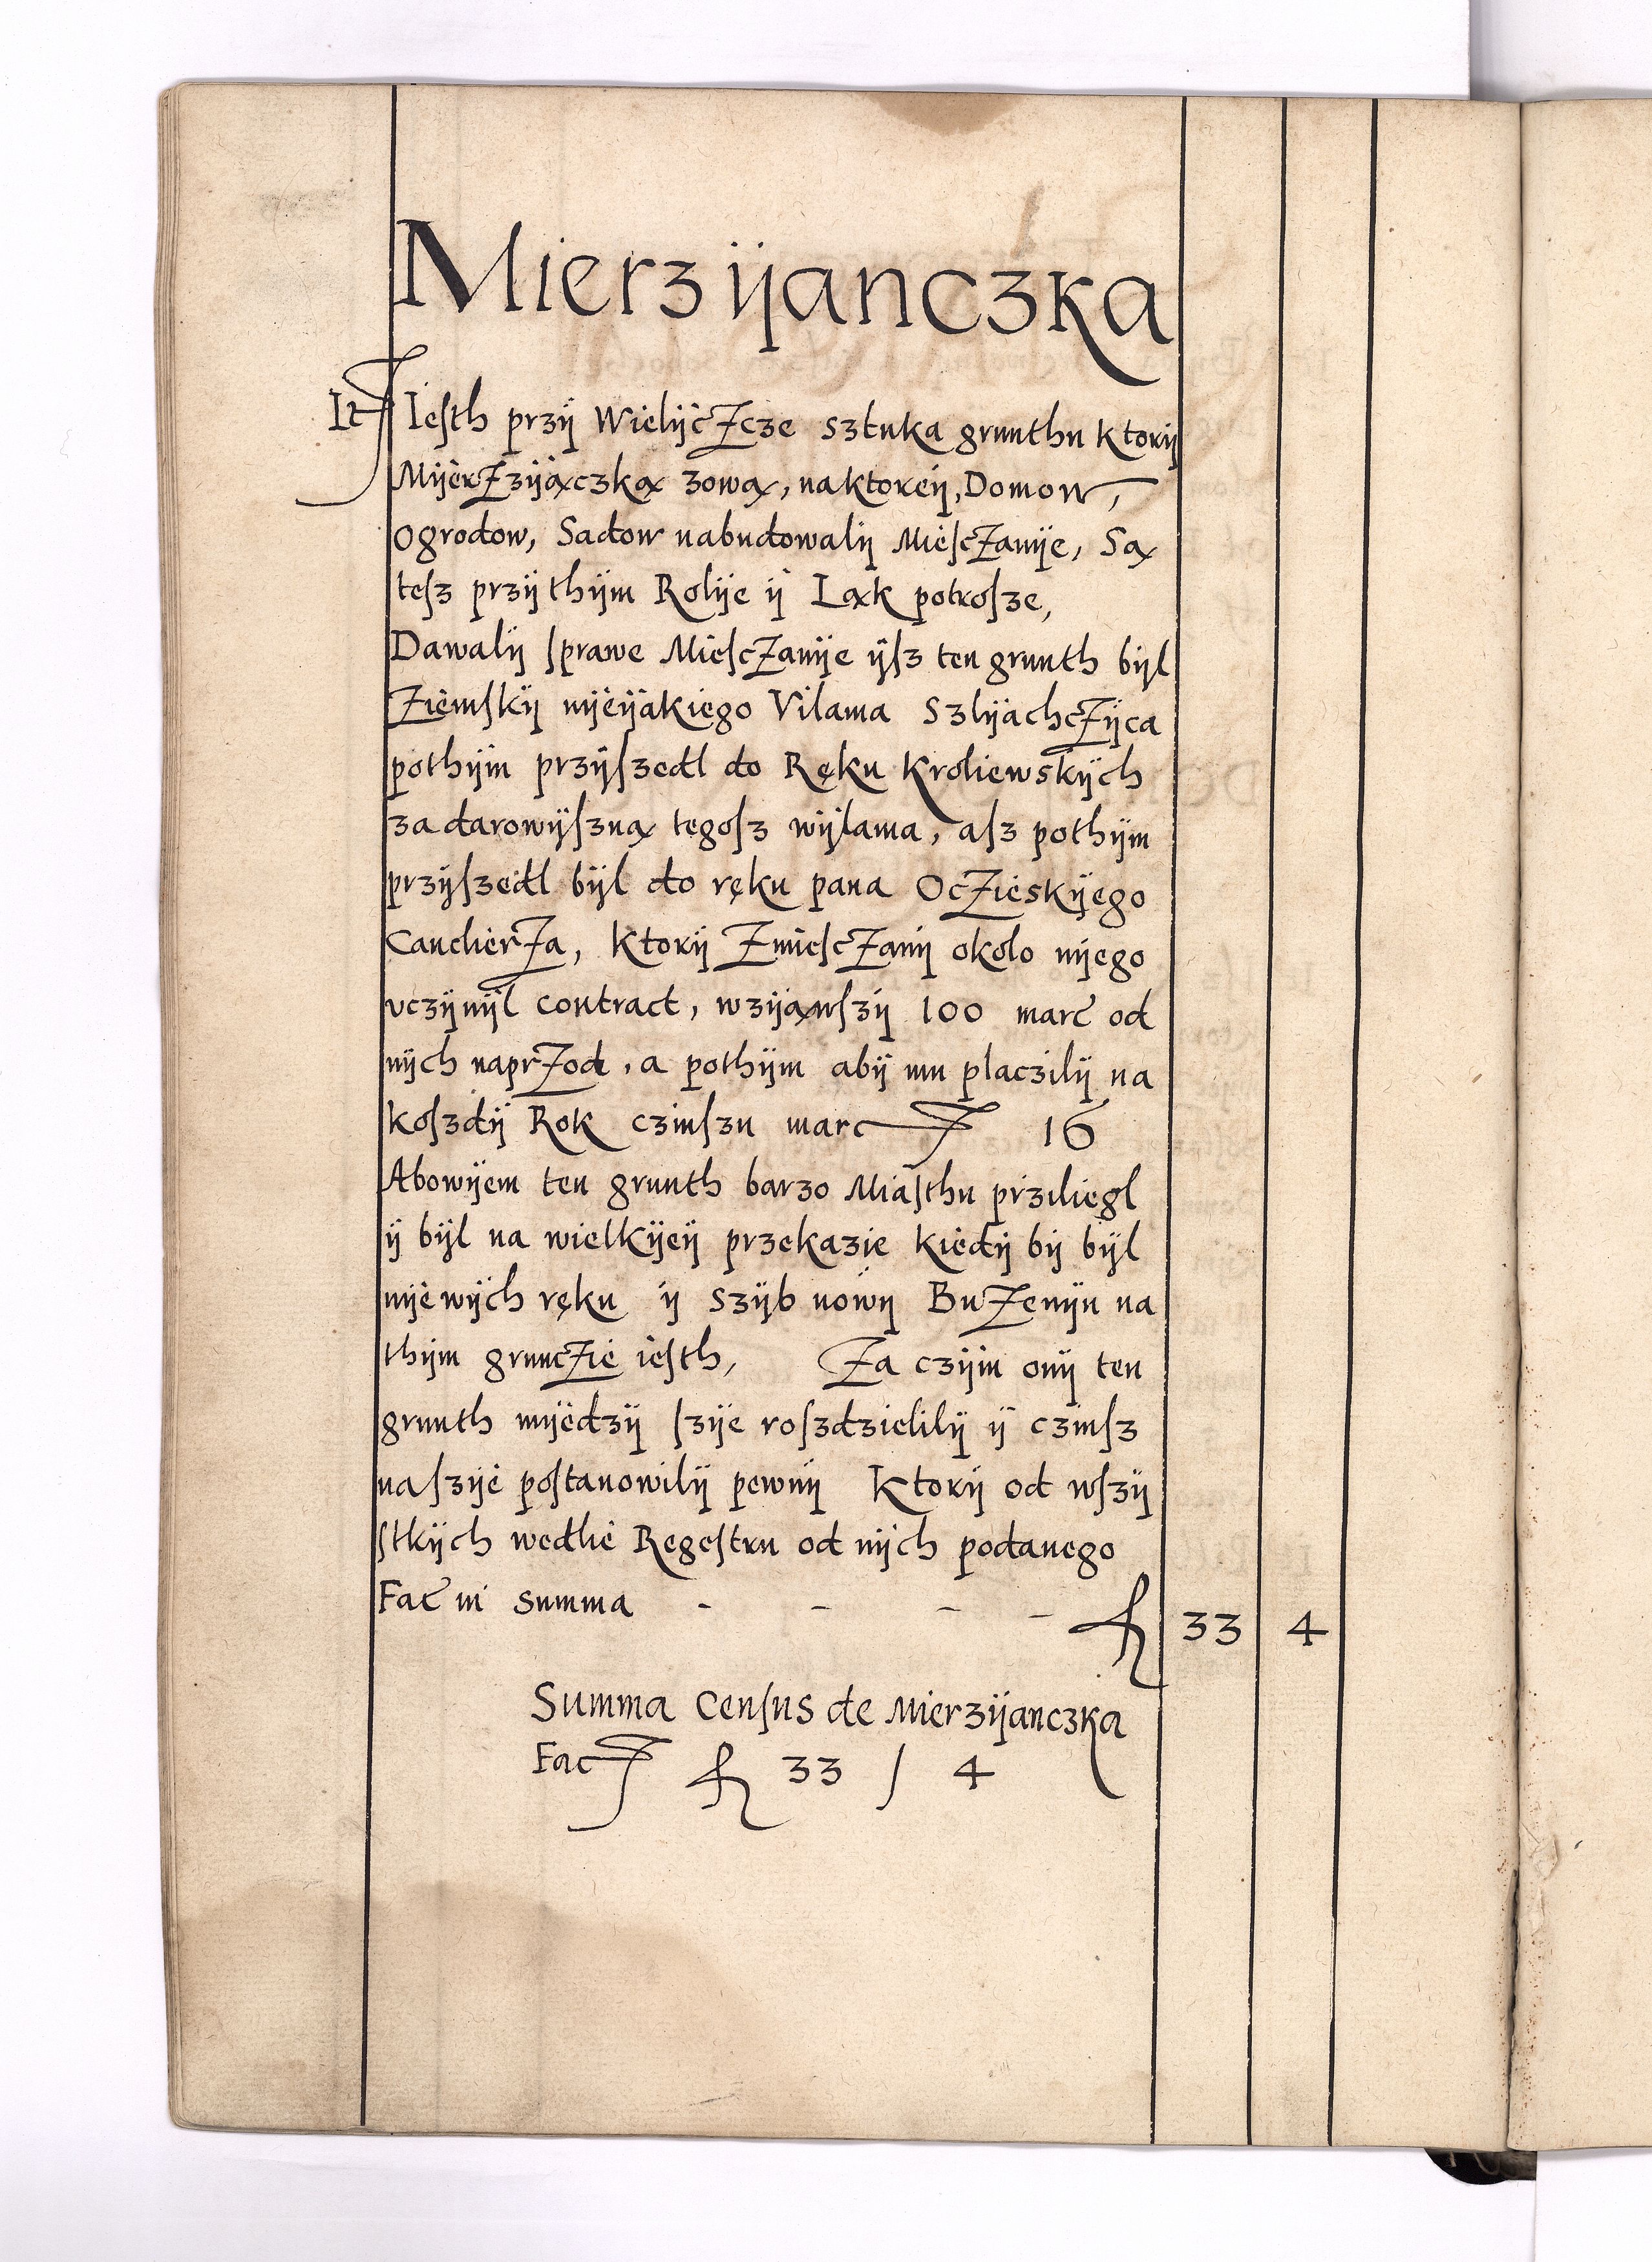 Mierzÿanczka
It Iesth przÿ Wielÿczcze Sztuka grunthu Ktorÿ
Mÿerzzÿączką zową, naktoreÿ, Domow,
Ogrodow, Sadow nabudowalÿ Miesczanÿe, Są
tesz przÿ thÿm Rolÿe ÿ Ląk potrosze,
Dawalÿ sprawe Miesczanÿe ÿsz ten grunth bÿl
Ziemskÿ nÿeÿakiego Vilama Szlÿachczÿca
pothÿm przÿszedl do Ręku Kroliewskÿch
za darowÿszną tegosz wÿlama, asz pothÿm
przÿszedl bÿl do ręku pana Oczieskÿego
Canclierza, Ktorÿ Zmiesczanÿ okolo nÿego
vczÿnÿl contract, wzÿąwszÿ 100 marc od
nÿch naprzod, a pothÿm abÿ mu placzilÿ na
koszdÿ Rok czinszu marc 16
Abowÿem ten grunth barzo Miasthu prziliegl
ÿ bÿl na wielkÿeÿ przekazie kiedÿ bÿ bÿl
nÿe wÿch ręku ÿ Szÿb nowÿ Buzenÿn na
thÿm grunczie iesth, Za czÿm onÿ ten
grunth mÿedzÿ szÿe roszdzielilÿ ÿ czinsz
na szÿe postanowilÿ pewnÿ Ktorÿ od wszÿ
stkÿch wedlie Regestru od nÿch podanego
Fac in summa - - - - fl 33 4
Summa Census de Mierzÿanczka
Fac fl 33 / 4